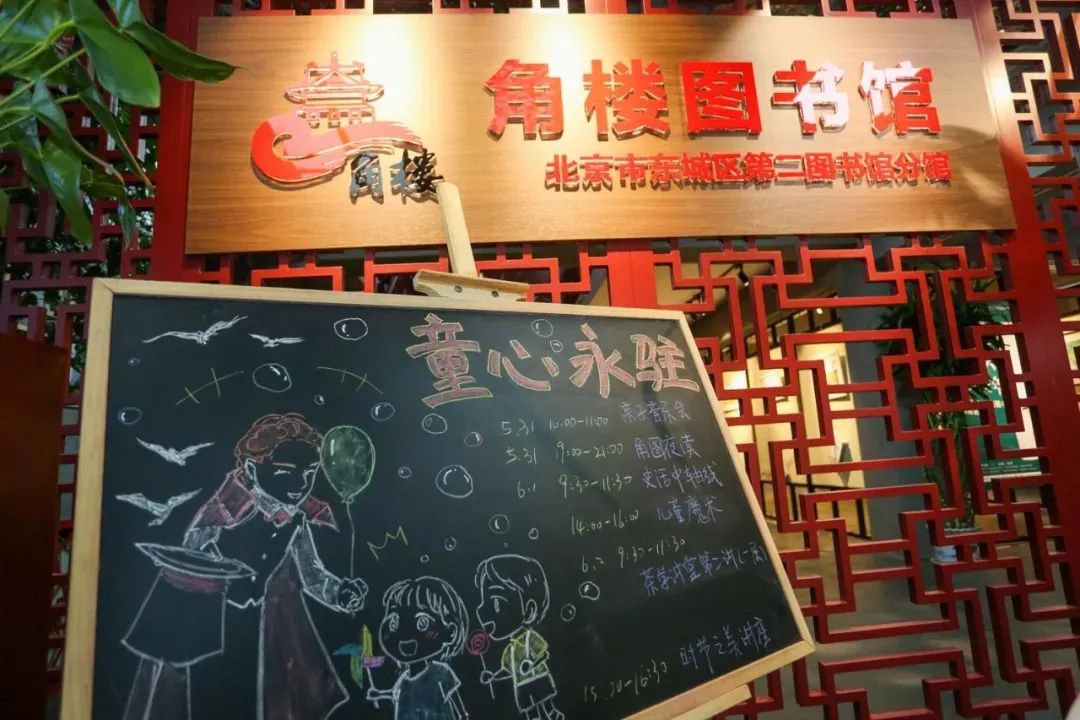 角楼图书馆
北京市东城区第二图书馆分馆
角楼
童心永驻
5.31 10:00-11:00 亲子音乐会
5.31 19:00-21:00 角图夜读
6.1 9:30-11:30 史话中轴线
14:00-16:00 儿童魔术
6.2 9:30-11:30
茶学讲堂第二讲(一层)
15:00-16:30 时节之美讲座